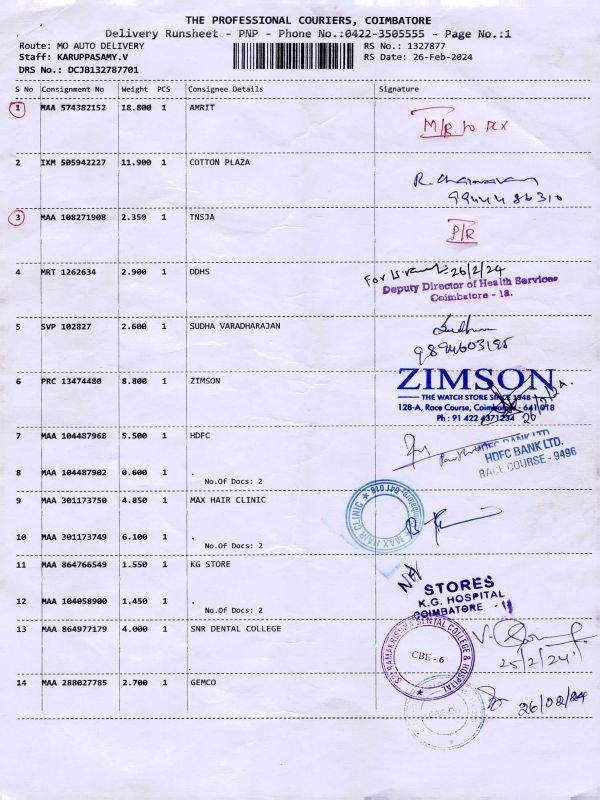 THE PROFESSIONAL COURIERS, COIMBATORE
Delivery Runsheet - PNP - Phone No.:0422-3505555 - Page No.:1
Route: MO AUTO DELIVERY
RS No.: 1327877
Staff: KARUPPASAMY.V
RS Date: 26-Feb-2024
DRS No.: DCJB132787701
S No Consignment No Weight PCS Consignee Details Signature
1 MAA 574382152 18.800 1 AMRIT
M/R to
2 IXM 505942227 11.900 1 COTTON PLAZA
3 MAA 108271908 2.350 1 TNSJA
4 MRT 1262634 2.900 1 DDHS
For 26/2/24
Deputy Director of Health Services
Coimbatore - 18.
5 SVP 102827 2.600 1 SUDHA VARADHARAJAN
Sudha
6 PRC 13474480 8.800 1 ZIMSON
ZIMSON
THE WATCH STORE SINCE 1948
128-A, Race Course, Coimbatore - 641 018
Ph : 91 422 4371234
26/2/24
7 MAA 104487968 5.500 1 HDFC
HDFC BANK LTD.
HDFC BANK LTD.
RACE COURSE - 9496
8 MAA 104487902 0.600 1 .
No.Of Docs: 2
9 MAA 301173750 4.850 1 MAX HAIR CLINIC
MAX HAIR CLINIC
10 MAA 301173749 6.100 1 .
No.Of Docs: 2
11 MAA 864766549 1.550 1 KG STORE
STORES
K.G. HOSPITAL
COIMBATORE - 18
12 MAA 104058900 1.450 1 .
No.Of Docs: 2
13 MAA 864977179 4.000 1 SNR DENTAL COLLEGE
SRI RAMAKRISHNA DENTAL COLLEGE & HOSPITAL
CBE - 6
25/2/24
14 MAA 288027785 2.700 1 GEMCO
26/02/24